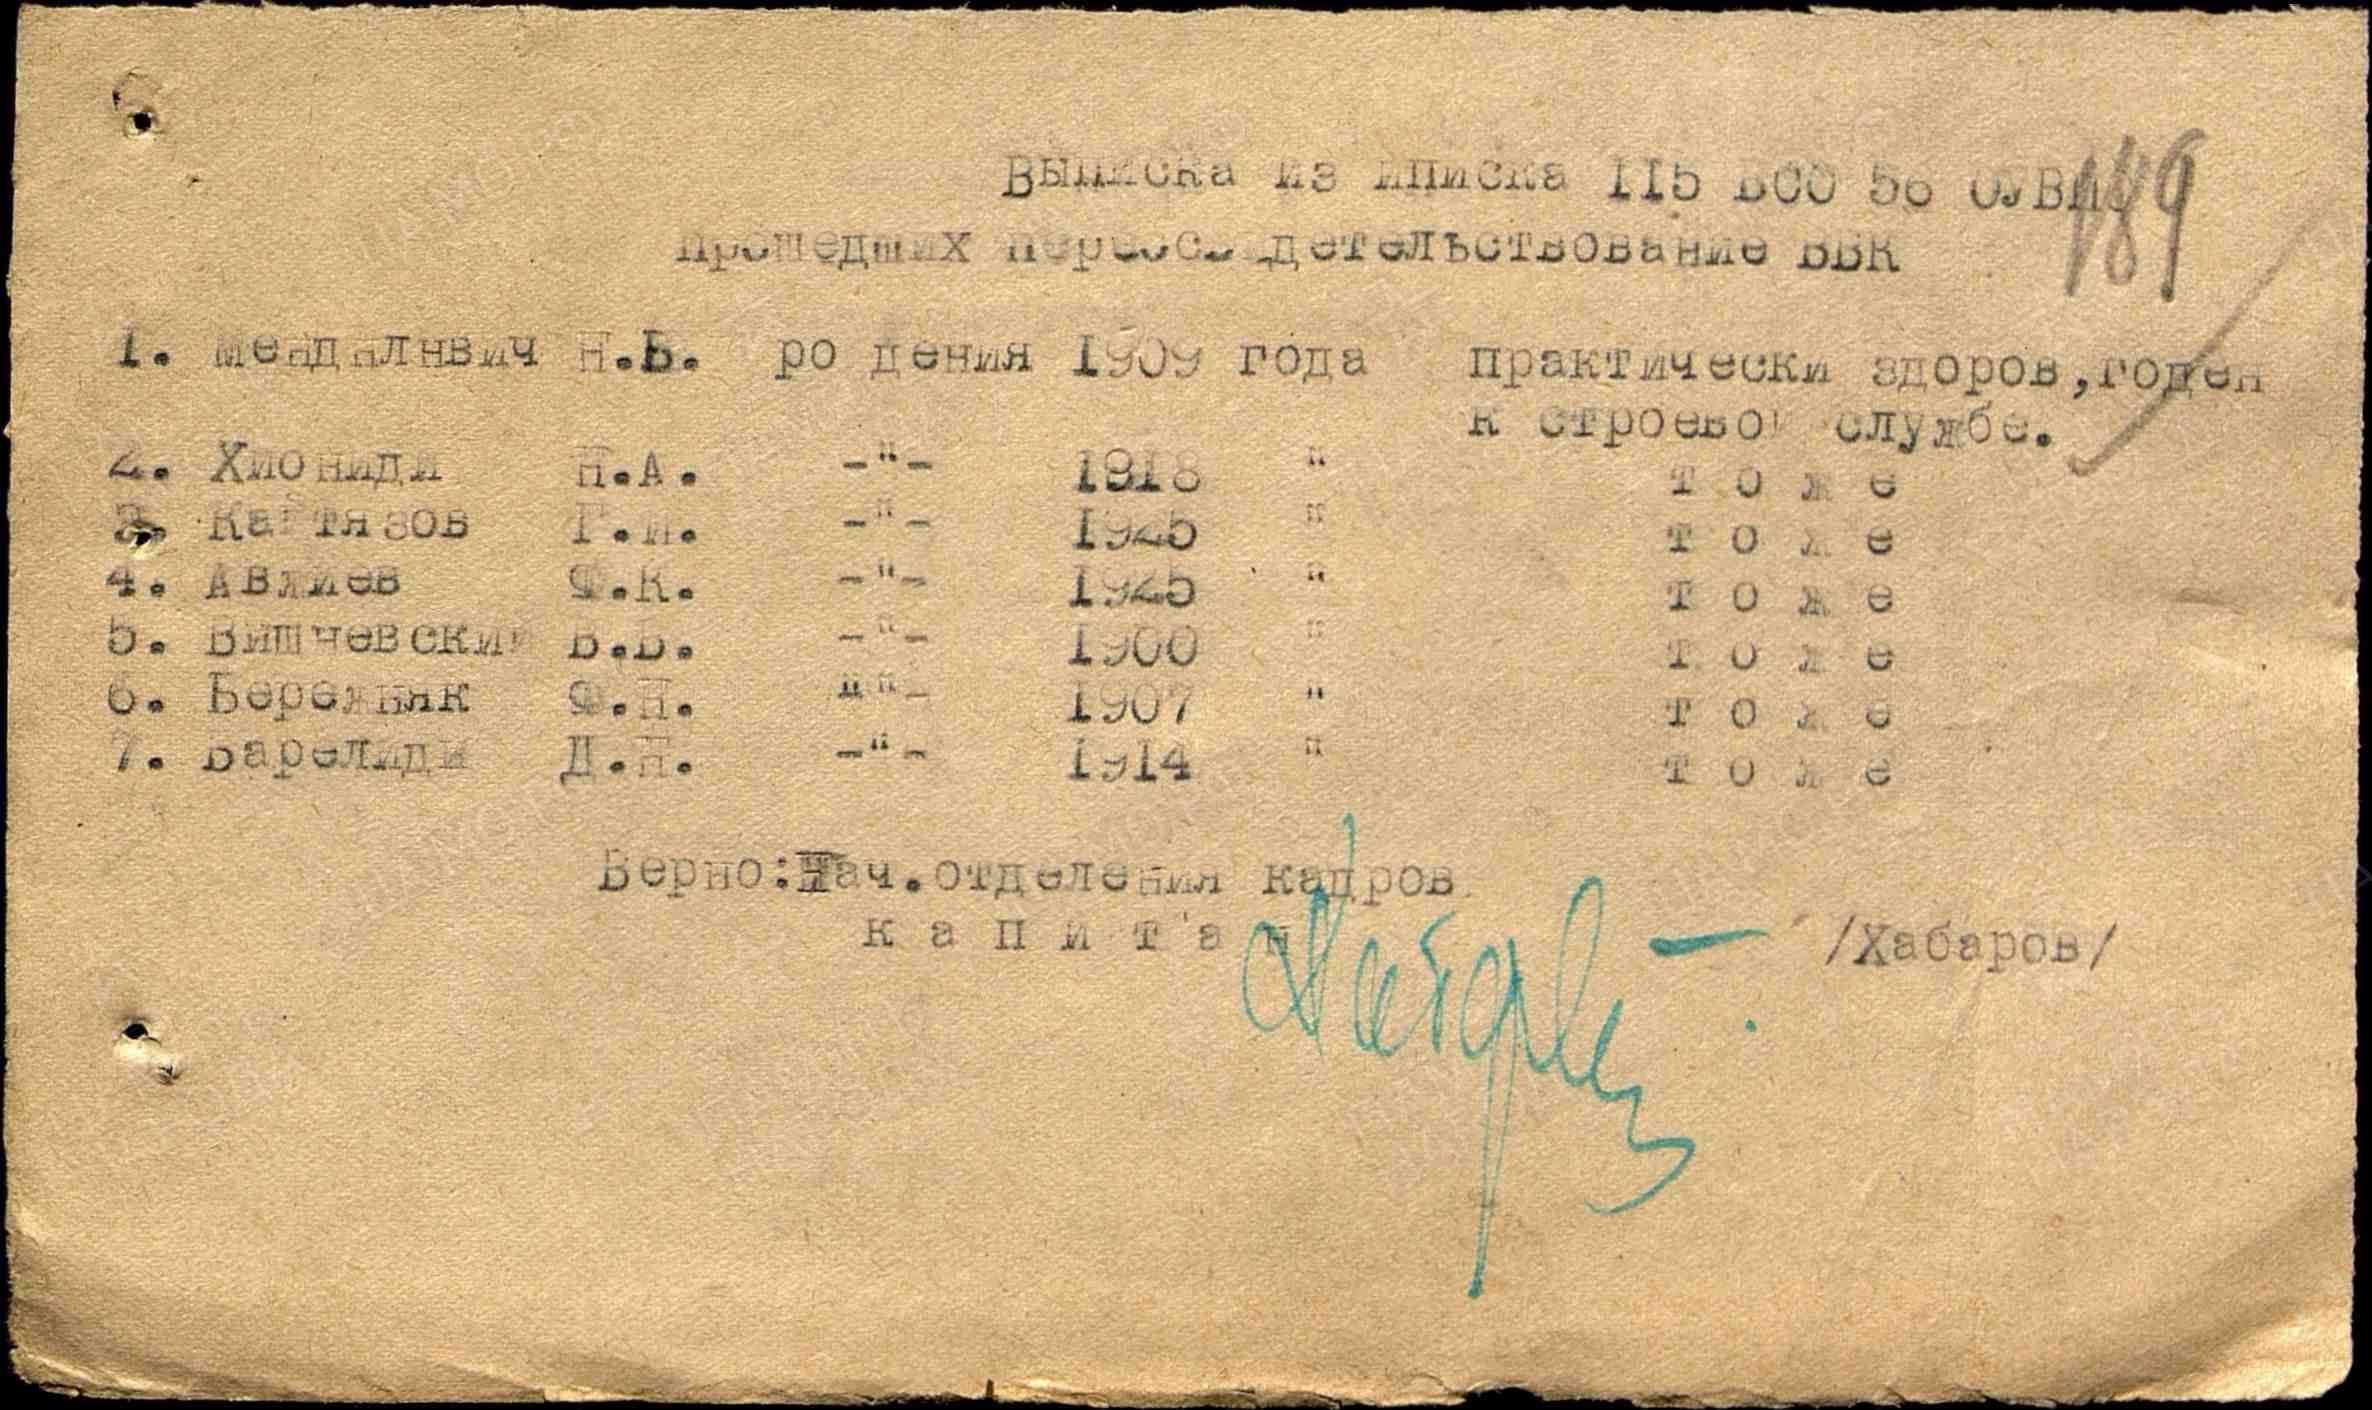 189
Выписка из иписка 115 ВСО 56 ОУВПС
прошедших переосвидетельствование ВВК
1. Мендилевич Н.Б. ро дения 1909 года практически здоров, годен
к строевой службе.
2. Хиониди Н.А. -"- 1918 " т о ж е
3. Г.И. -"- 1925 " т о ж е
4. Авжиев Ф.К. -"- 1925 " т о ж е
5. Вишневский В.В. -"- 1900 " т о ж е
6. Бережняк Ф.Н. ""- 1907 " т о ж е
7. Варелиди Д.Н. -"- 1914 " т о ж е
Верно: Нач. отделения кадров
к а п и т а н /Хабаров/